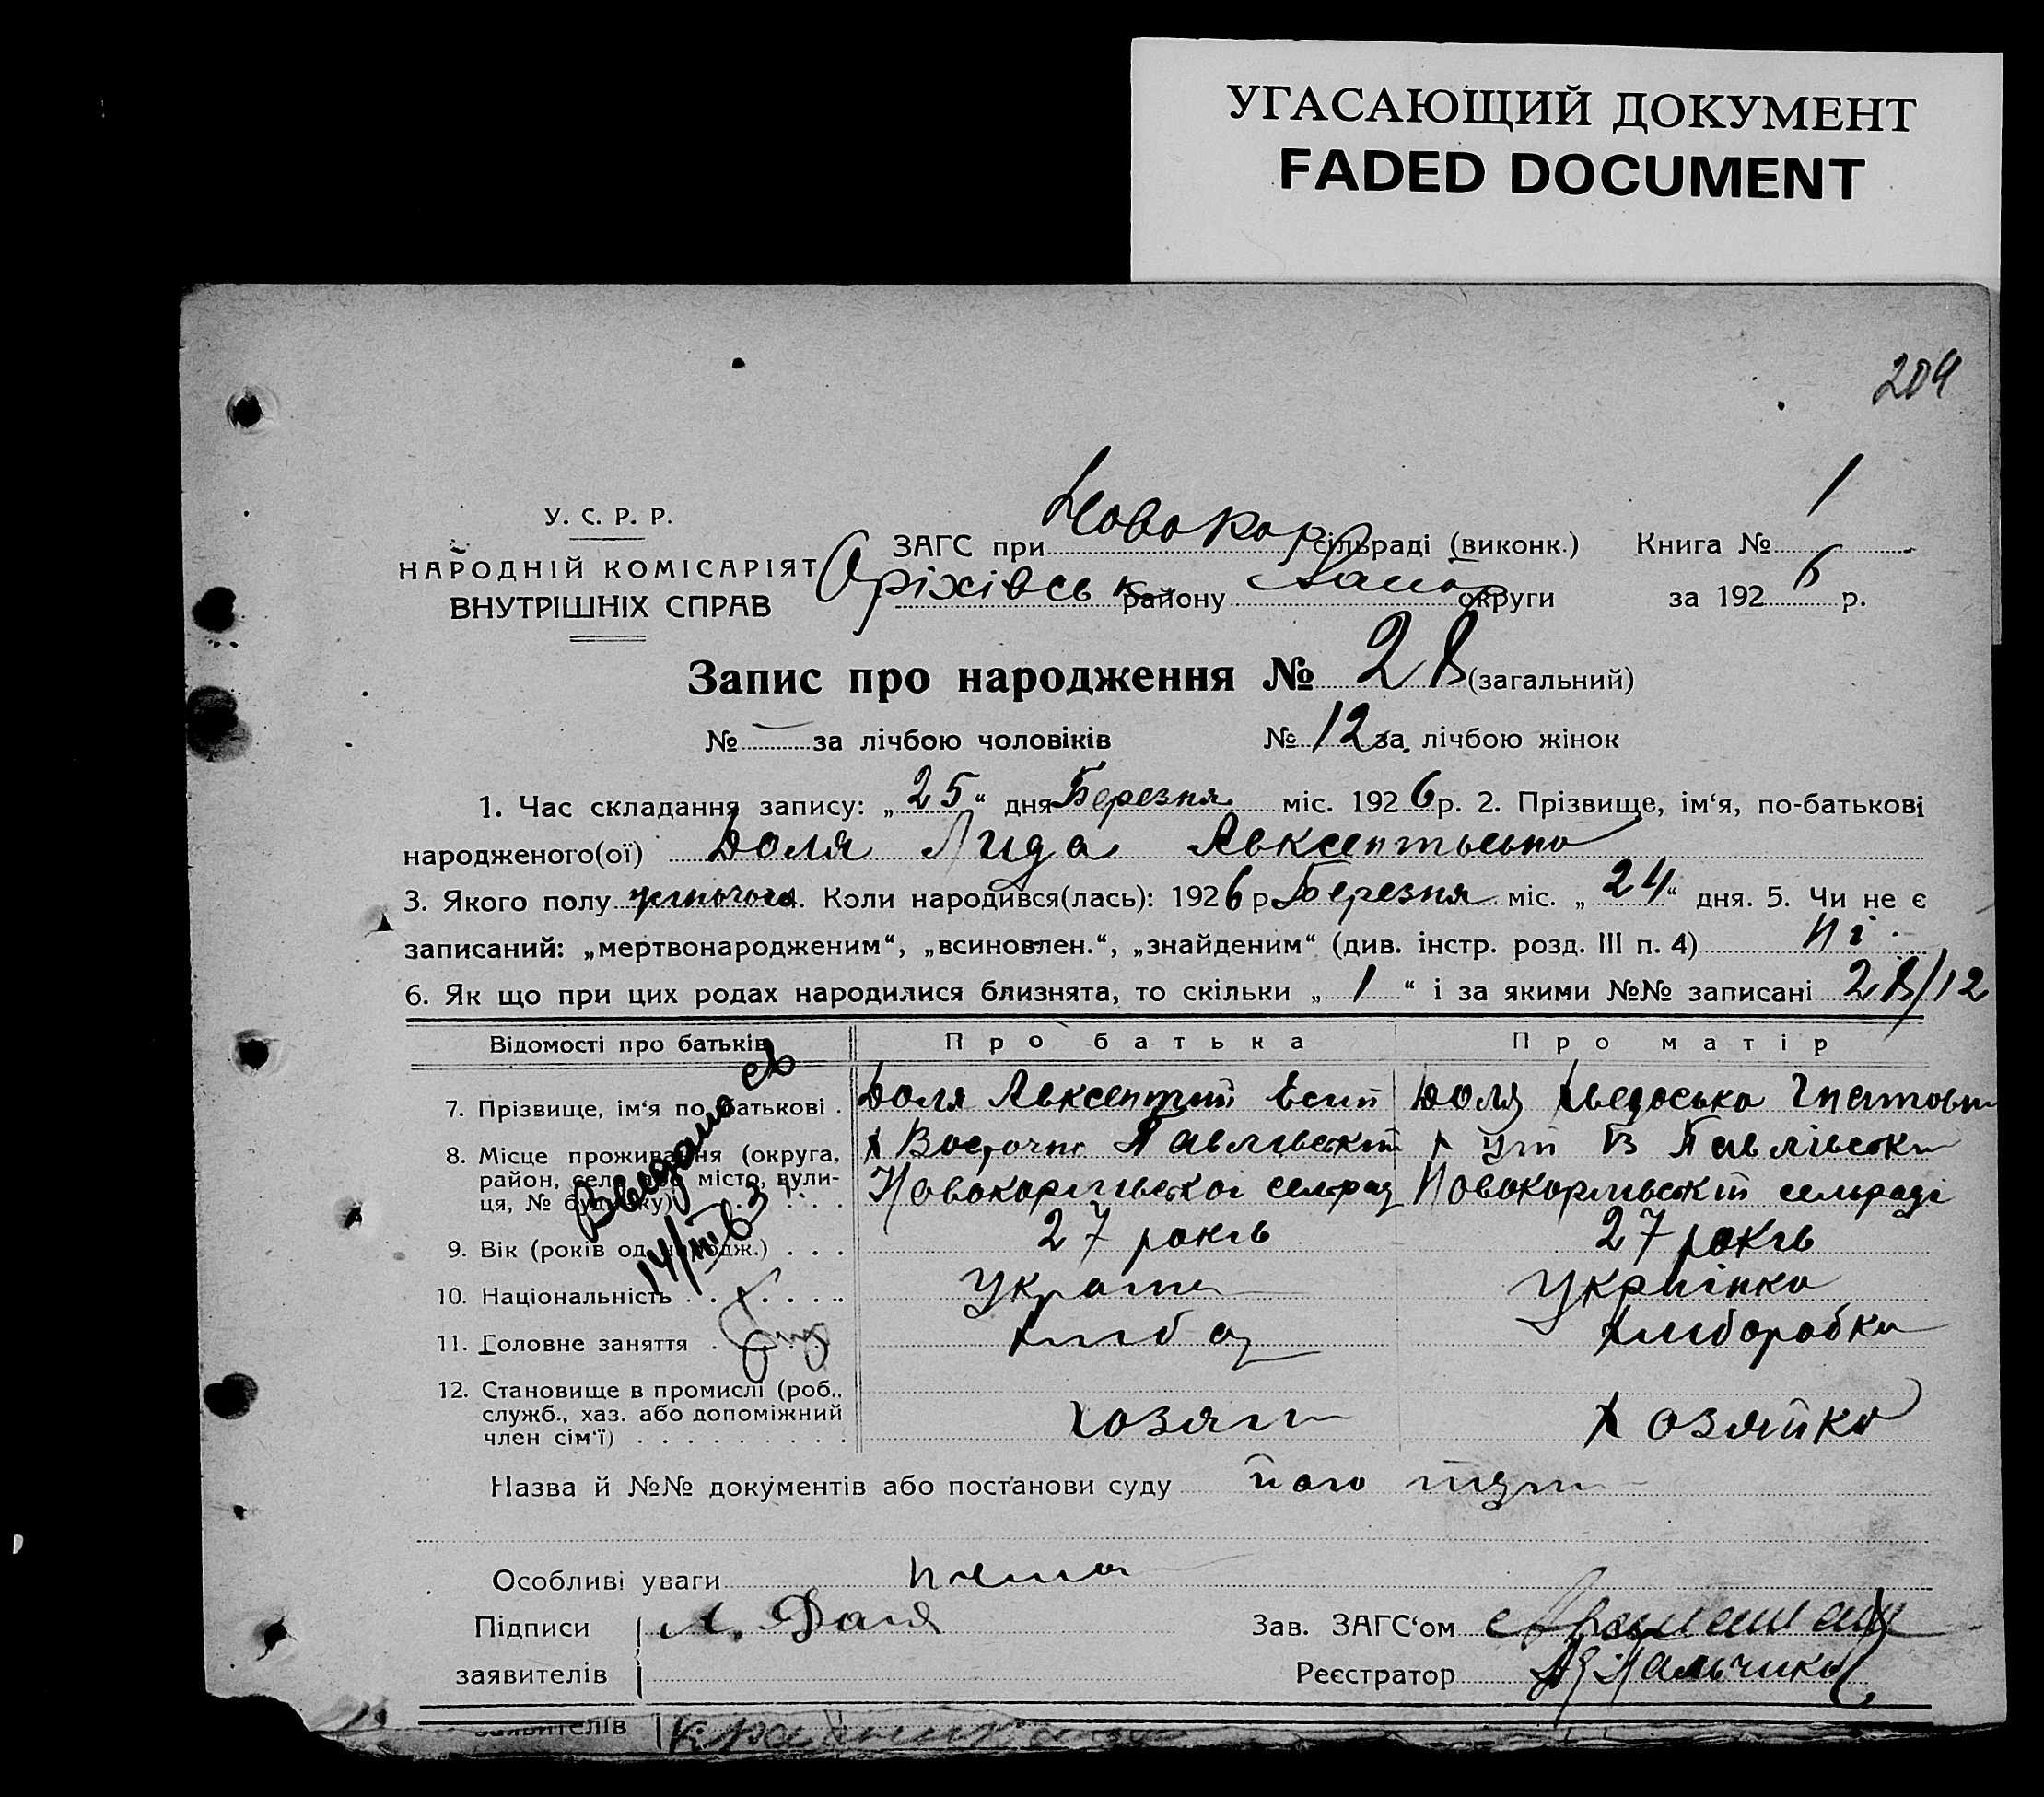 УГАСАЮЩИЙ ДОКУМЕНТ
FADED DOCUMENT
209
У. С. Р. Р.
НАРОДНІЙ КОМІСАРІЯТ
ВНУТРІШНІХ СПРАВ
ЗАГС при Новокар сільраді (виконк.) Книга № 1
Оріхівськ району Запор округи за 1926 р.
Запис про народження № 28 (загальний)
№ — за лічбою чоловіків № 12 за лічбою жінок
1. Час складання запису: „25“ дня Березня міс. 1926 р. 2. Прізвище, ім‘я, по-батькові
народженого(ої) Доля Лида Авксентьевна
3. Якого полу жіночого. Коли народився(лась): 1926 р. Березня міс. „24“ дня. 5. Чи не є
записаний: „мертвонародженим“, „всиновлен.“, „знайденим“ (див. інстр. розд. III п. 4) Ні
6. Як що при цих родах народилися близнята, то скільки „1“ і за якими №№ записані 28/12
Відомості про батьків Про батька Про матір
7. Прізвище, ім‘я по батькові . Доля Авксентий Есип Доля Хведоська Гнатовн
8. Місце проживання (округа, район, село або місто, вулиця, № будинку) х Восточно Павлівський х В Павлівськ
Новокарлівської сельрад Новокарлівській сельраді
9. Вік (років од народж.) . . . 27 років 27 років
10. Національність . . . . . . . Україн Українка
11. Головне заняття . . . . . Хліб Хліборобка
12. Становище в промислі (роб., служб., хаз. або допоміжний член сім‘ї) . . . . . . . . . хозяін Хозяйка
14/III 63
Назва й №№ документів або постанови суду його
Особливі уваги нема
Підписи Л. Доля Зав. ЗАГС‘ом
заявителів Реєстратор Пальчика
заявителів